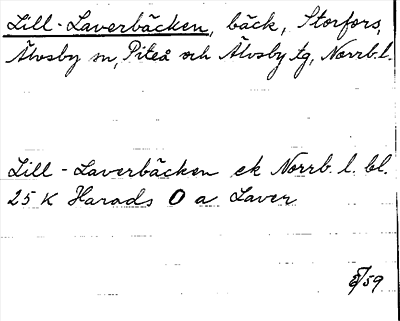 Lill-Laverbäcken, bäck, Storfors,
Älvsby sn, Piteå och Älvsby tg, Norrb.l.
Lill-Laverbäcken ek Norrb. l. bl.
25 K Harads O a Laver
5/59